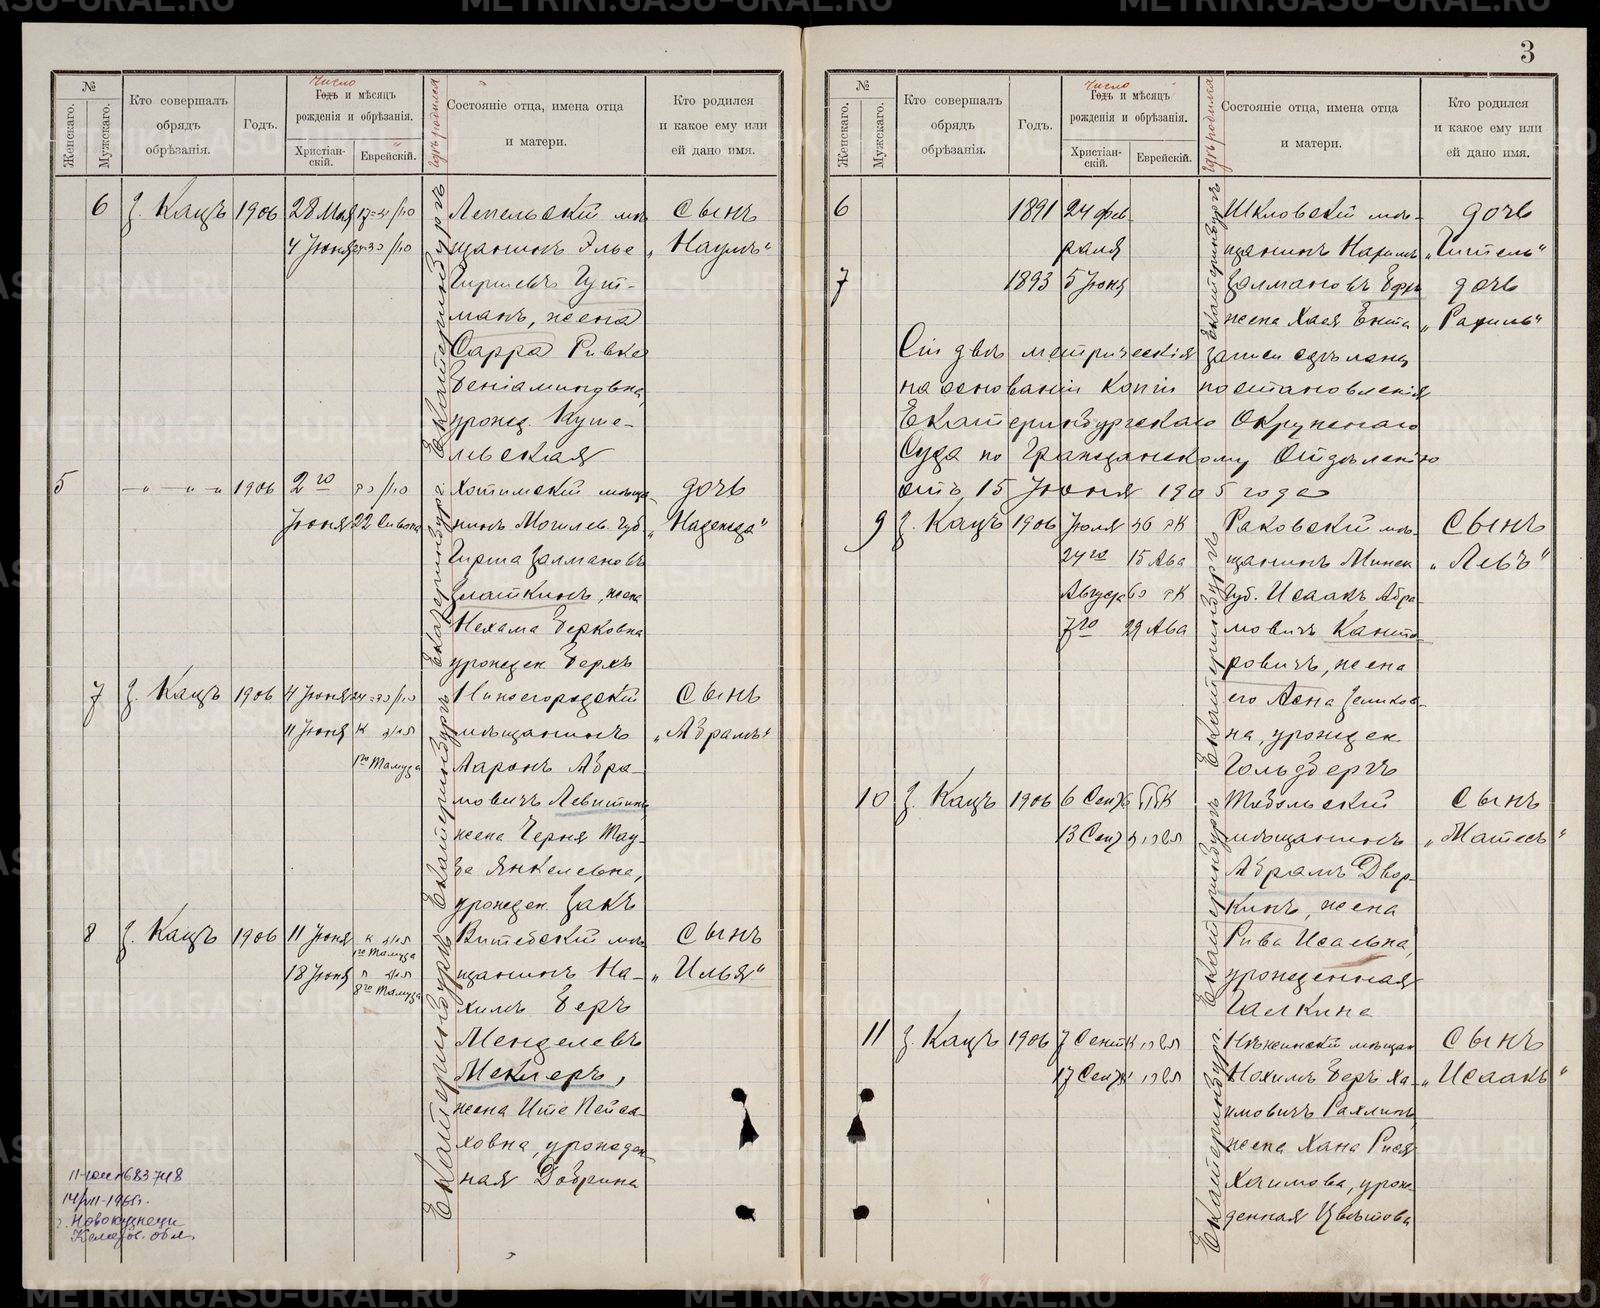 №
Женскаго.
Мужскаго.
Кто совершалъ
обрядъ
обрѣзанія.
Годъ.
Число
Годъ и мѣсяцъ
рожденія и обрѣзанія.
Христіан-
скій.
Еврейскій.
гдѣ родился
Состояніе отца, имена отца
и матери.
Кто родился
и какое ему или
ей дано имя.
6 З. Кацъ 1906 28 Мая
4 Іюня
Екатеринбургъ
Лепельскій мѣ-
щанинъ Элье
Гиршевъ Гут-
манъ, жена
Сарра Ривка
Беніаминовна,
урожд. Куше-
левская
сынъ
„Наумъ“
5 —„—„—„ 1906 2го
Іюня 22 Сивона
Екатеринбург.
Хотимскій мѣща-
нинъ Могилев. Губ.
Гирша Залмановъ
Златкинъ, жена
Нехама Берковна
урожден Беркъ
дочь
„Надежда“
7 З. Кацъ 1906 4 Іюня
11 Іюня
1го Тамуза
Екатеринбургъ
Нижегородскій
мѣщанинъ
Ааронъ Абра-
мовичъ Левитинъ,
жена Черня Тау-
ба Янкелевна,
урожден. Закъ
сынъ
„Абрамъ“
8 З. Кацъ 1906 11 Іюня
1го Тамуза
18 Іюня
8го Тамуза
Екатеринбургъ
Витебскій мѣ-
щанинъ На-
химъ Беръ
Менделевъ
Меклеръ,
жена Ите Пейса-
ховна, урожден-
ная Добрина
сынъ
„Илья“
683748
Новокузнецк
Кемеров. обл.
3
№
Женскаго.
Мужскаго.
Кто совершалъ
обрядъ
обрѣзанія.
Годъ.
Число
Годъ и мѣсяцъ
рожденія и обрѣзанія.
Христіан-
скій.
Еврейскій.
гдѣ родился
Состояніе отца, имена отца
и матери.
Кто родился
и какое ему или
ей дано имя.
6 1891 24 фев-
раля
7 1893 5 Іюня
Екатеринбургъ
Шкловскій мѣ-
щанинъ Нахимъ
Залмановъ
жена Хася Ента
дочь
„Гитель“
дочь
„Рахиль“
Сіи двѣ метрическія записи сдѣланы
на основаніи копіи постановленія
Екатеринбургскаго Окружнаго
Суда по Гражданскому Отдѣленію
отъ 15 Іюня 1905 года
9 З. Кацъ 1906 Іюля
24го 15 Ава
Августа
7го 29 Ава
Екатеринбургъ
Раковскій мѣ-
щанинъ Минск
Губ. Исаакъ Абра-
мовичъ Канто-
ровичъ, жена
его Асна Зеликов-
на, урожден
Гольдбергъ
сынъ
„Левъ“
10 З. Кацъ 1906 6 Сент
13 Сент
Екатеринбургъ
Тобольскій
мѣщанинъ
Абрамъ Двор-
кинъ, жена
Рива Исаевна,
урожденная
Галкина
сынъ
„Матесъ“
11 З. Кацъ 1906 7 Сент
17 Сент
Екатеринбург.
Нѣжинскій мѣщан
Нохимъ Беръ Ха-
имовичъ Рахлинъ,
жена Хана Рися
Хаимова, урож-
денная Цвѣтова
сынъ
„Исаакъ“
METRIKI.GASO-URAL.RU